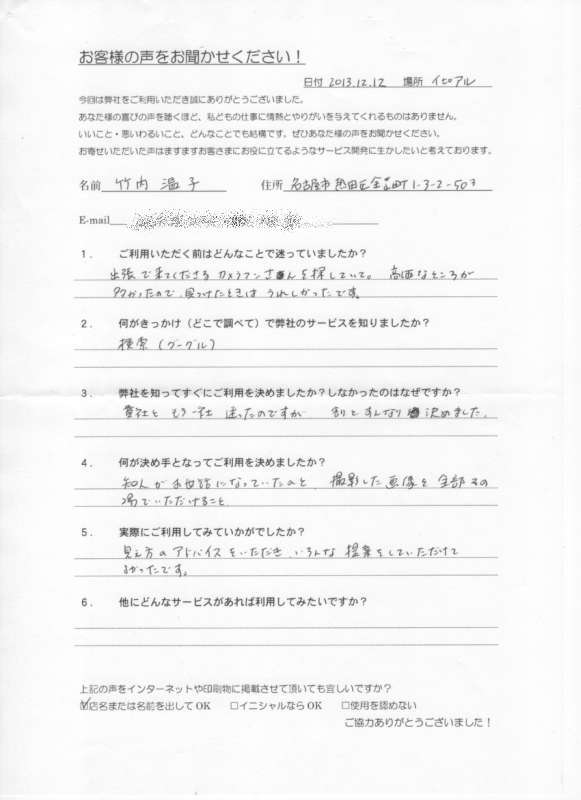 お客様の声をお聞かせください！
日付 2013.12.12 場所 イセアル
今回は弊社をご利用いただき誠にありがとうございました。
あなた様の喜びの声を聴くほど、私どもの仕事に情熱とやりがいを与えてくれるものはありません。
いいこと・悪いわるいこと、どんなことでも結構です。ぜひあなた様の声をお聞かせください。
お寄せいただいた声はますますお客さまにお役に立てるようなサービス開発に生かしたいと考えております。
名前 竹内 温子 住所 名古屋市熱田区金山町1-3-2-503
E-mail
1． ご利用いただく前はどんなことで迷っていましたか？
出張で来てくださるカメラマンさんを探していて。高価なところが
多かったので、見つけたときはうれしかったです。
2． 何がきっかけ（どこで調べて）で弊社のサービスを知りましたか？
検索（グーグル）
3． 弊社を知ってすぐにご利用を決めましたか？しなかったのはなぜですか？
貴社ともう一社 迷ったのですが 割とすんなり決めました。
4． 何が決め手となってご利用を決めましたか？
知人がお世話になっていたのと、撮影した画像を全部その
場でいただけること
5． 実際にご利用してみていかがでしたか？
見え方のアドバイスをいただき、いろんな提案をしていただけて
よかったです。
6． 他にどんなサービスがあれば利用してみたいですか？
上記の声をインターネットや印刷物に掲載させて頂いても宜しいですか？
☑店名または名前を出してOK □イニシャルならOK □使用を認めない
ご協力ありがとうございました！